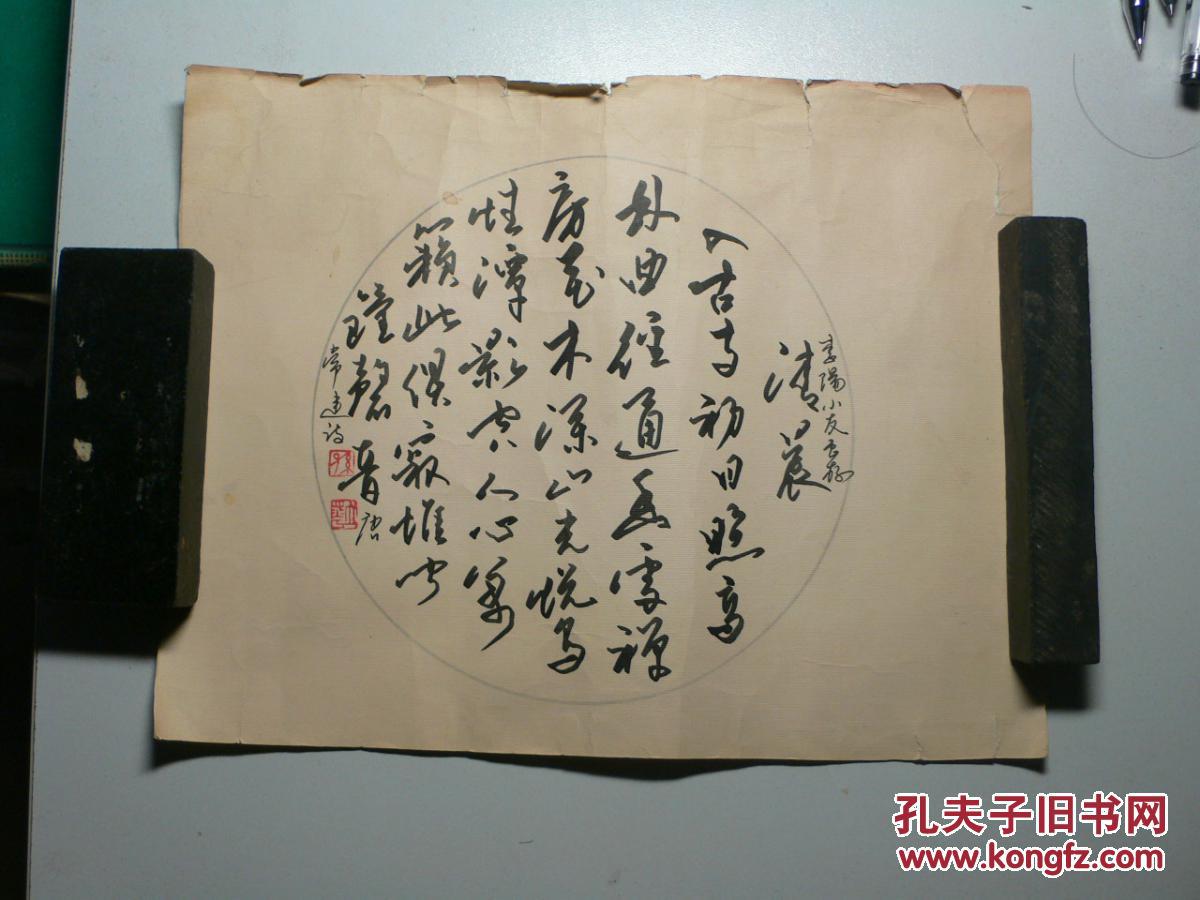 李陽小友
清晨
入古寺初日照高
林曲徑通幽處禪
房花木深山光悦鳥
性潭影空人心萬
籟此俱寂惟聞
鐘磬音 唐
常建詩
孔夫子旧书网
www.kongfz.com